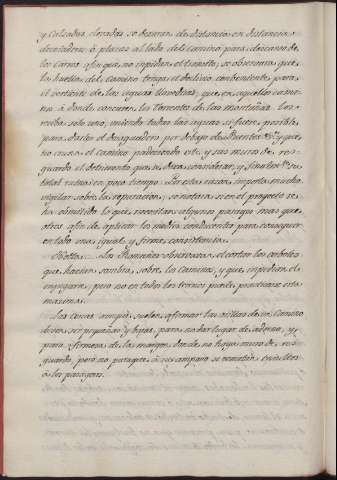 y Calzadas elevadas se haran de distancia en distancia
 ò plazas al lado del camino para descanso de
los carros afin que no impidan el transito; se observara que
la huella del Camino tenga el declivio combeniente para
el vertiente de las aguas llovedizas; que en aquellos cami-
nos à donde concurren los Torrentes de las montañas los
reciba solo uno, uniendo todas las aguas si fuere posible,
para darles el desaguadero por debajo de Puentes &ª y que
no cruze el camino padeciendo este y sus muros de res-
guardo el detrimento que se deve considerar, y
total ruina en poco tiempo. Por esta razon, importa mucho
vigilar sobre la reparacion; se notara si en el proyecto se
ha omitido lo que necesitan algunos parages mas que
otros afin de aplicar los medios conducentes para conseguir
en todo una igual y firme consistencia.
Los Romanos observavan, el cortar los arboles
que hacian sombra, sobre los Caminos, y que impedian el
enjugarse, pero no en todos los terrenos puede practicarse esta
maxima.
Las cercas aunque suelen afirmar las orillas de los Camino
deven ser pequeñas y bajas, para no dar lugar de , y
para firmeza de las margenes donde no haya muro de res-
guardo, pero no parapeto à cuyo amparo se cometan insultos
à los pasageros.